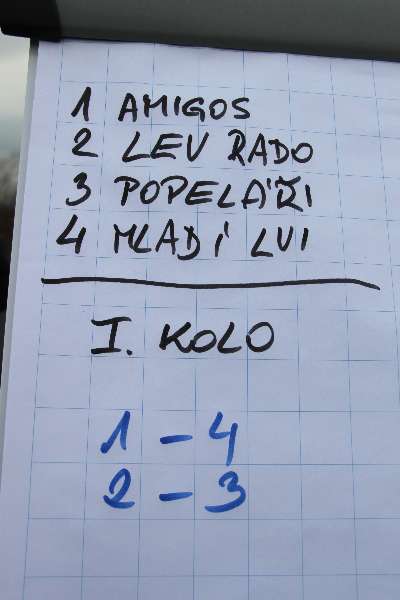 1 AMIGOS
2 LEV RADO
3 POPELÁŘI
4 MLADÍ LVI
I. KOLO
1 – 4
2 – 3